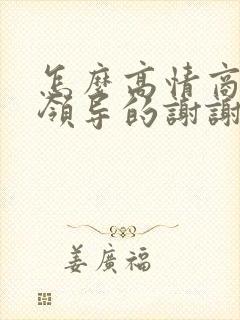 怎麼高情商
領导的謝謝
姜廣福